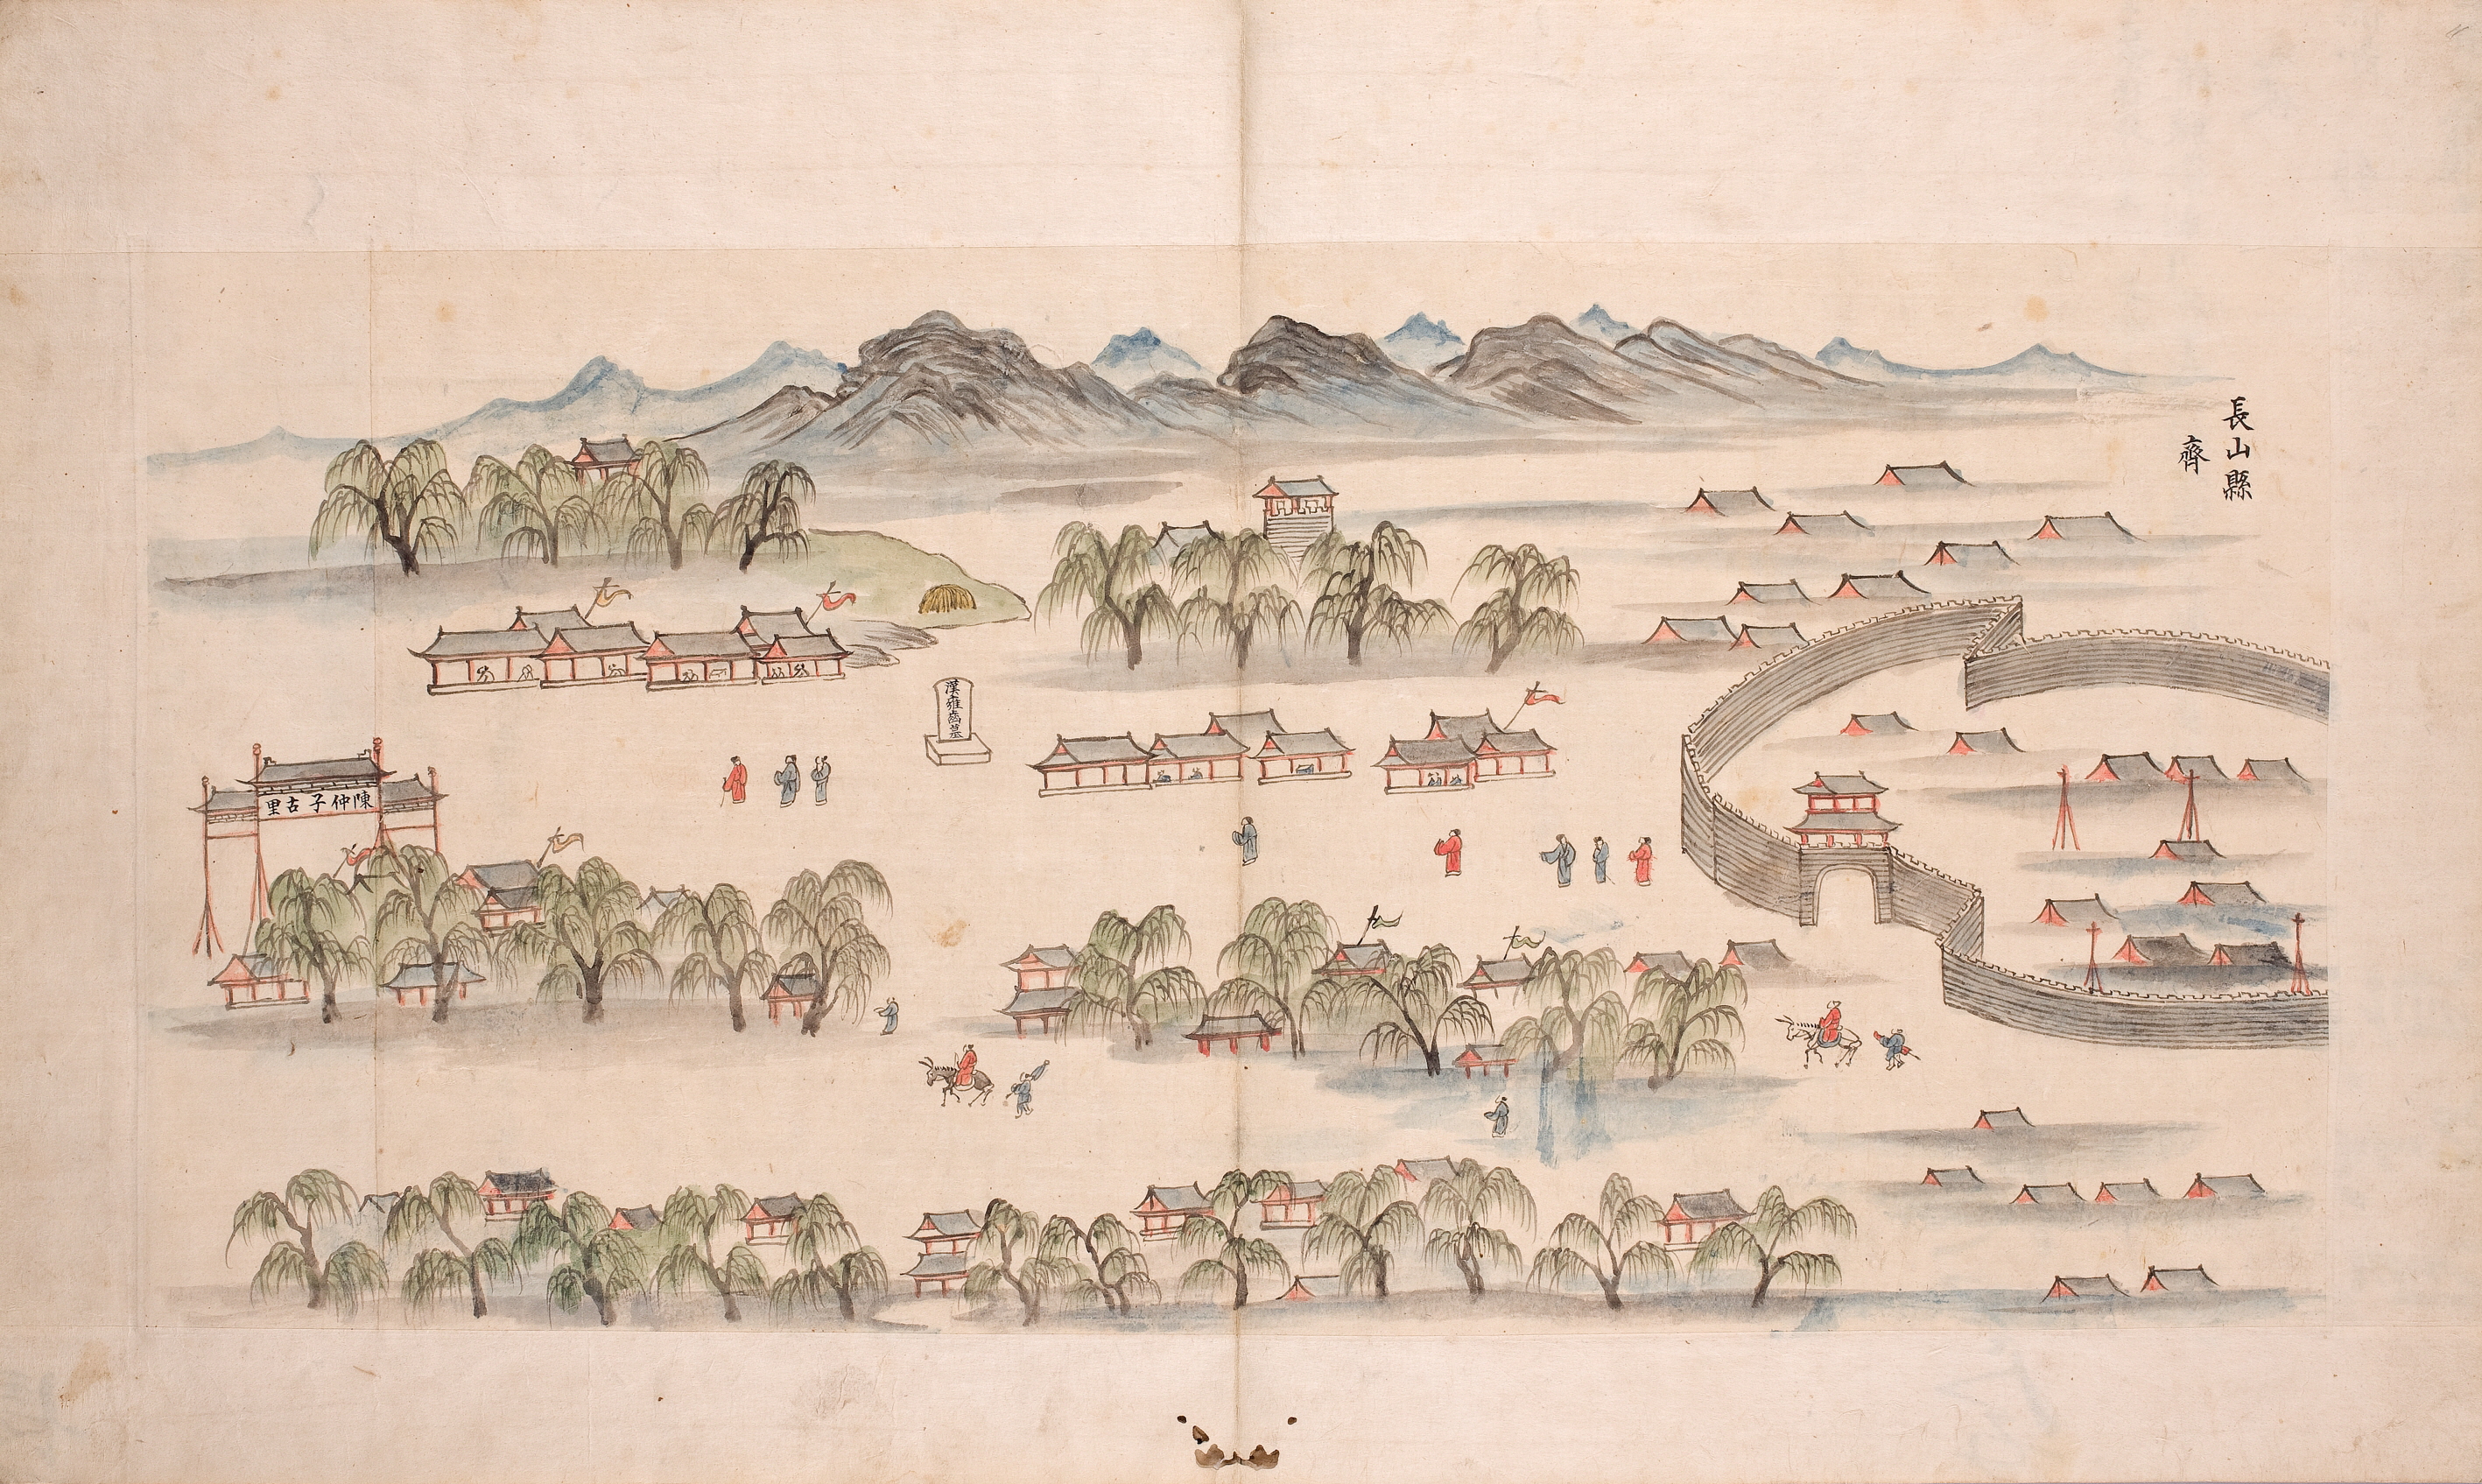 長山縣
齊
漢雍齒墓
陳仲子古里